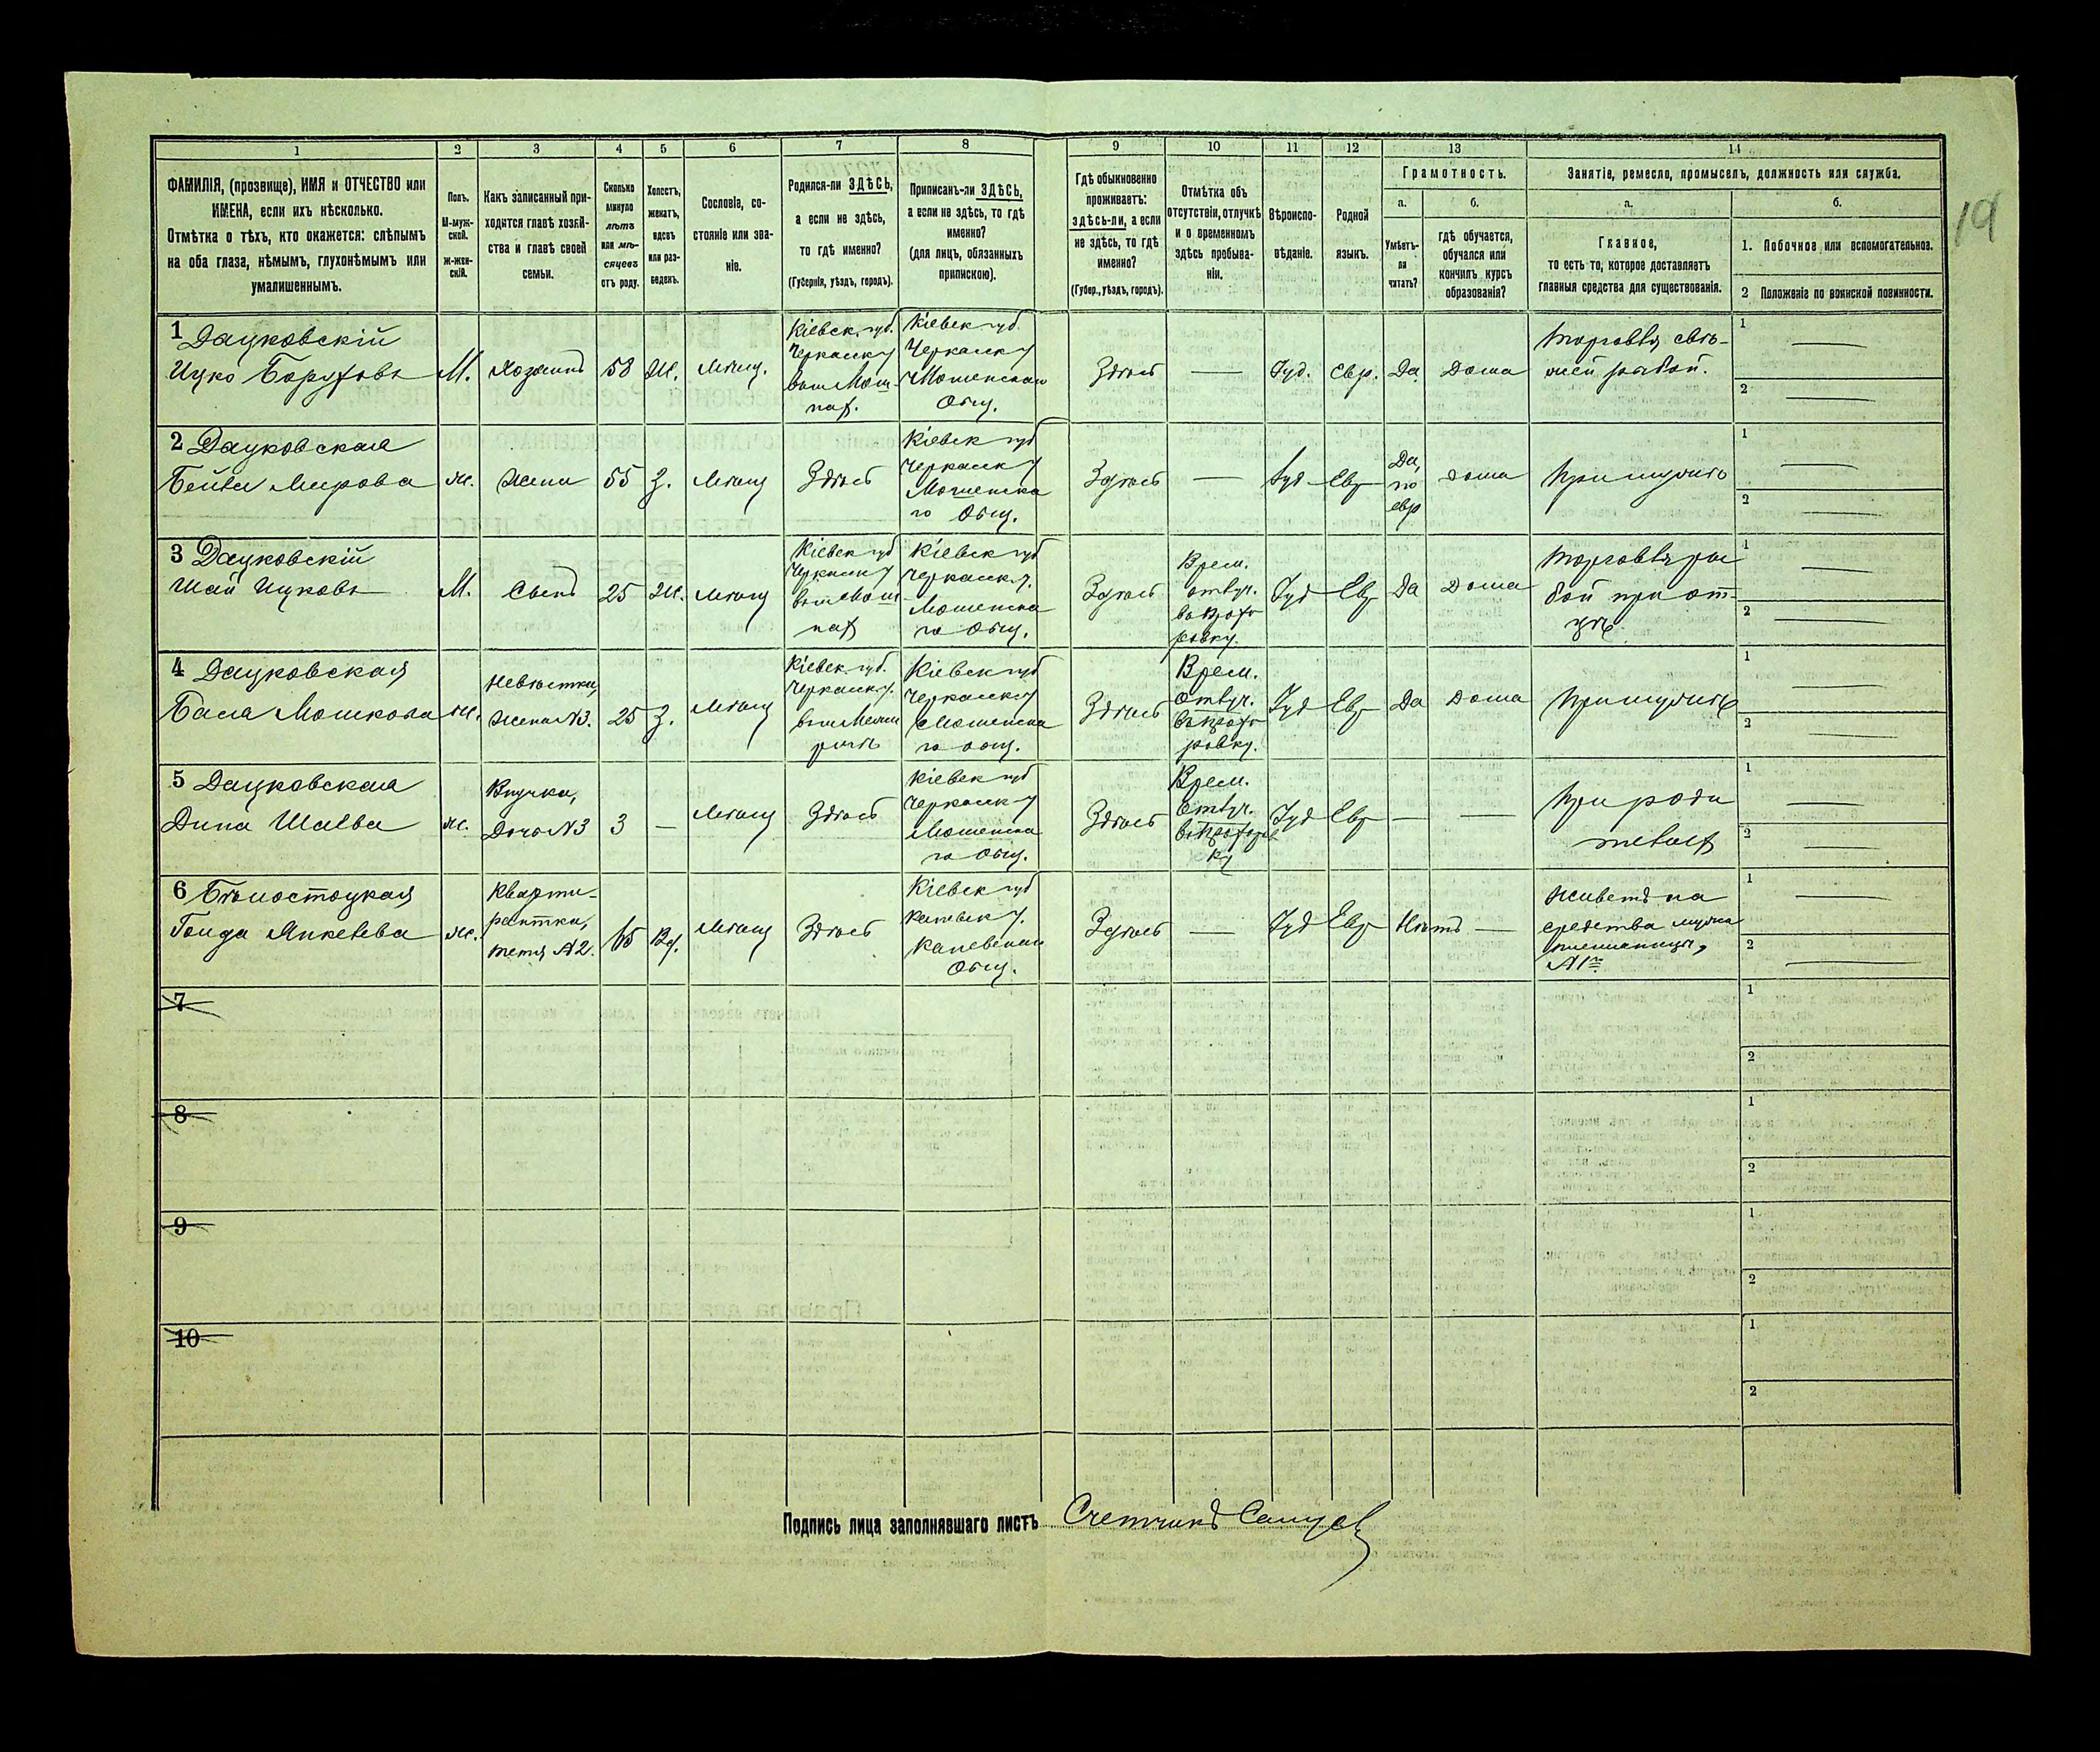 1 2 3 4 5 6 7 8 9 10 11 12 13 14
ФАМИЛІЯ, (прозвище), ИМЯ и ОТЧЕСТВО или
ИМЕНА, если ихъ нѣсколько.
Отмѣтка о тѣхъ, кто окажется: слѣпымъ
на оба глаза, нѣмымъ, глухонѣмымъ или
умалишеннымъ.
Полъ.
М-муж-
ской.
Ж-жен-
скій.
Какъ записанный при-
ходится главѣ хозяй-
ства и главѣ своей
семьи.
Сколько
минуло
лѣтъ
или мѣ-
сяцевъ
отъ роду.
Холостъ,
женатъ,
вдовъ
или раз-
веденъ.
Сословіе, со-
стояніе или зва-
ніе.
Родился-ли ЗДѢСЬ,
а если не здѣсь,
то гдѣ именно?
(Губернія, уѣздъ, городъ).
Приписанъ-ли ЗДѢСЬ,
а если не здѣсь, то гдѣ
именно?
(для лицъ, обязанныхъ
припискою).
Гдѣ обыкновенно
проживаетъ:
здѣсь-ли, а если
не здѣсь, то гдѣ
именно?
(Губер., уѣздъ, городъ).
Отмѣтка объ
отсутствіи, отлучкѣ
и о временномъ
здѣсь пребыва-
ніи.
Вѣроиспо-
вѣданіе.
Родной
языкъ.
Грамотность.
а.
Умѣетъ-
ли
читать?
б.
гдѣ обучается,
обучался или
кончилъ курсъ
образованія?
Занятіе, ремесло, промыселъ, должность или служба.
а.
Главное,
то есть то, которое доставляетъ
главныя средства для существованія.
б.
1. Побочное или вспомогательное.
2 Положеніе по воинской повинности.
19
1 Дацковскій
Ицко Боруховъ
М.
Хозяинъ
58
Ж.
Мѣщ.
Кіевск. губ.
Черкасск у
Кіевск губ.
Черкасск у
Мошенскаго
Общ.
Здѣсь
—
Іуд.
Евр.
Да
Дома
Торговля свѣ-
жей рыбой.
1
2
2 Дацковская
Бейла Мирова
ж.
Жена
55
З.
Мѣщ
Здѣсь
Кіевск губ
Черкасск у
Мошенска
го Общ.
Здѣсь
—
Іуд
Евр
Да,
по
евр
Дома
При мужѣ
1
2
3 Дацковскій
Шай Ицковъ
М.
Сынъ
25
Ж.
Мѣщ
Кіевск губ
Черкасск у
Кіевск губ
Черкасск у.
Мошенска
го Общ.
Здѣсь
Врем.
отлуч.
Іуд
Евр
Да
Дома
Торговля ры
бой при от-
цѣ
1
2
4 Дацковская
Бася Мошкова
ж.
Невѣстка,
Жена N3.
25
З.
Мѣщ
Кіевск. губ.
Черкасск у.
Кіевск губ
Черкасск у
Мошенска
го общ.
Здѣсь
Врем.
Отлуч.
Іуд
Евр
Да
Дома
При мужѣ
1
2
5 Дацковская
Дина Шаева
ж.
Внучка,
Дочь N3
3
—
Мѣщ
Здѣсь
Кіевск губ
Черкасск у
Мошенска
го Общ.
Здѣсь
Врем.
Отлуч.
Іуд
Евр
—
—
При роди
теляхъ
1
2
6 Бѣлостоцкая
Голда Янкелева
ж.
Кварти-
рантка,
тетя N2.
65
Вд.
Мѣщ
Здѣсь
Кіевск губ
Каневск у.
Каневскаго
Общ.
Здѣсь
—
Іуд
Евр
Нѣтъ
—
Живетъ на
средства мужа
племянницы,
N1го
1
2
7
1
2
8
1
2
9
1
2
10
1
2
Подпись лица заполнявшаго листъ Счетчикъ